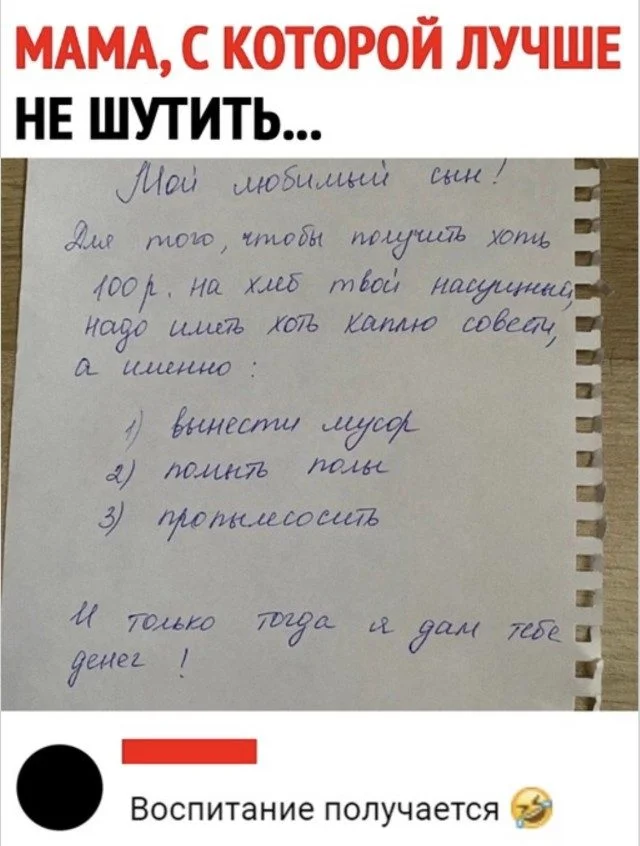 МАМА, С КОТОРОЙ ЛУЧШЕ
НЕ ШУТИТЬ...
Мой любимый сын!
Для того, чтобы получить хоть
100 р. на хлеб твой насущный,
надо иметь хоть каплю совести,
а именно:
1) вынести мусор
2) помыть полы
3) пропылесосить
И только тогда я дам тебе
денег !
Воспитание получается 🤣